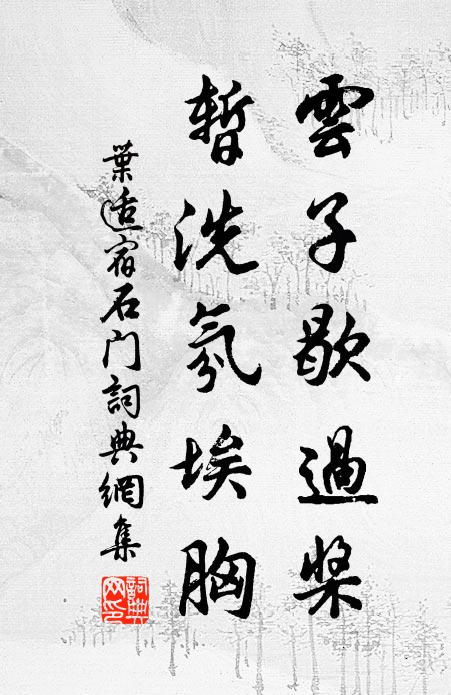 雲子歇過槳
暫洗氛埃胸
葉適宿石门詞典網集
詞典网印